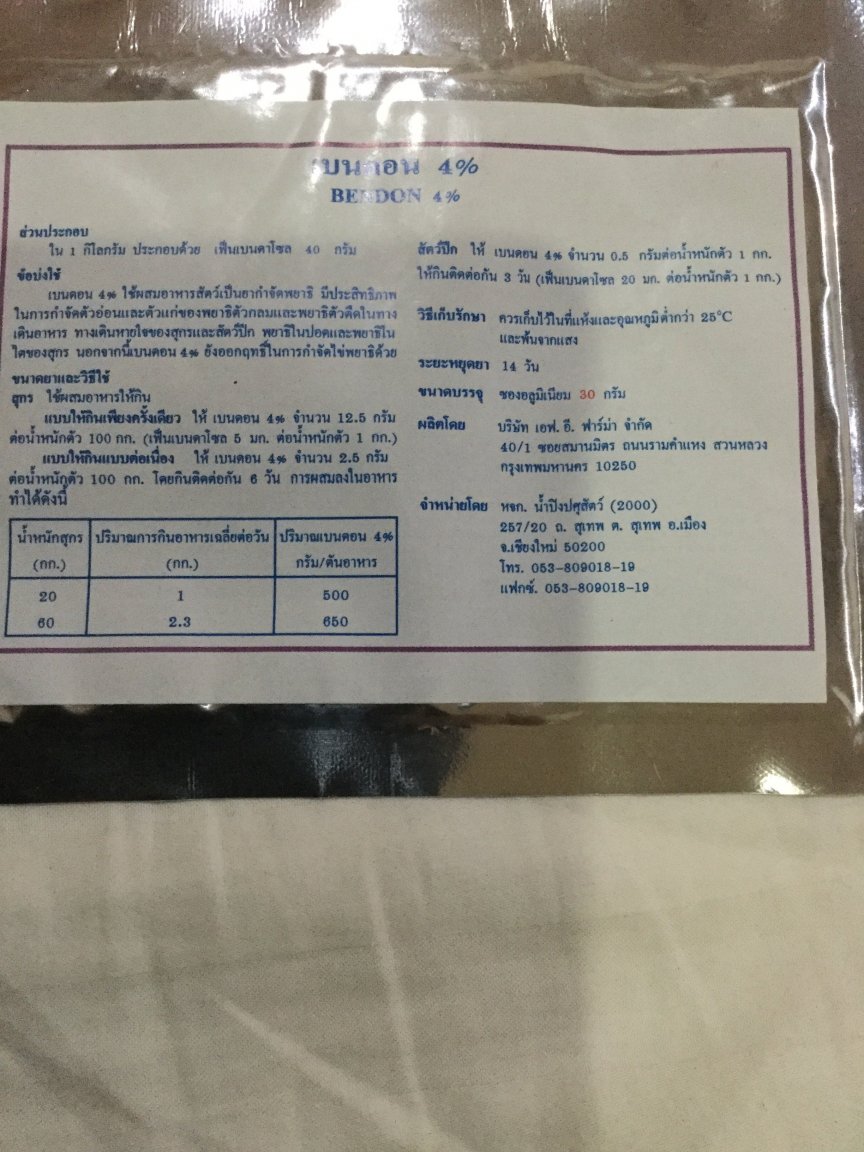 เบนดอน 4%
BENDON 4%
ส่วนประกอบ
ใน 1 กิโลกรัม ประกอบด้วย เฟ็นเบนดาโซล 40 กรัม
ข้อบ่งใช้
เบนดอน 4% ใช้ผสมอาหารสัตว์เป็นยากำจัดพยาธิ มีประสิทธิภาพ
ในการกำจัดตัวอ่อนและตัวแก่ของพยาธิตัวกลมและพยาธิตัวตืดในทาง
เดินอาหาร ทางเดินหายใจของสุกรและสัตว์ปีก พยาธิในปอดและพยาธิใน
ไตของสุกร นอกจากนี้เบนดอน 4% ยังออกฤทธิ์ในการกำจัดไข่พยาธิด้วย
ขนาดยาและวิธีใช้
สุกร ใช้ผสมอาหารให้กิน
แบบให้กินเพียงครั้งเดียว ให้ เบนดอน 4% จำนวน 12.5 กรัม
ต่อน้ำหนักตัว 100 กก. (เฟ็นเบนดาโซล 5 มก. ต่อน้ำหนักตัว 1 กก.)
แบบให้กินแบบต่อเนื่อง ให้ เบนดอน 4% จำนวน 2.5 กรัม
ต่อน้ำหนักตัว 100 กก. โดยกินติดต่อกัน 6 วัน การผสมลงในอาหาร
ทำได้ดังนี้
น้ำหนักสุกร ปริมาณการกินอาหารเฉลี่ยต่อวัน ปริมาณเบนดอน 4%
(กก.) (กก.) กรัม/ตันอาหาร
20 1 500
60 2.3 650
สัตว์ปีก ให้ เบนดอน 4% จำนวน 0.5 กรัมต่อน้ำหนักตัว 1 กก.
ให้กินติดต่อกัน 3 วัน (เฟ็นเบนดาโซล 20 มก. ต่อน้ำหนักตัว 1 กก.)
วิธีเก็บรักษา ควรเก็บไว้ในที่แห้งและอุณหภูมิต่ำกว่า 25°C
และพ้นจากแสง
ระยะหยุดยา 14 วัน
ขนาดบรรจุ ซองอลูมิเนียม 30 กรัม
ผลิตโดย บริษัท เอฟ. อี. ฟาร์ม่า จำกัด
40/1 ซอยสมานมิตร ถนนรามคำแหง สวนหลวง
กรุงเทพมหานคร 10250
จำหน่ายโดย หจก. น้ำปิงปศุสัตว์ (2000)
257/20 ถ. สุเทพ ต. สุเทพ อ.เมือง
จ.เชียงใหม่ 50200
โทร. 053-809018-19
แฟกซ์. 053-809018-19